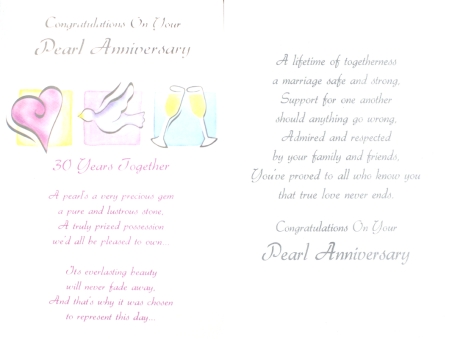 Congratulations On Your
Pearl Anniversary
30 Years Together
A pearl's a very precious gem
a pure and lustrous stone,
A truly prized possession
we'd all be pleased to own...
Its everlasting beauty
will never fade away,
And that's why it was chosen
to represent this day...
A lifetime of togetherness
a marriage safe and strong,
Support for one another
should anything go wrong,
Admired and respected
by your family and friends,
You've proved to all who know you
that true love never ends.
Congratulations On Your
Pearl Anniversary